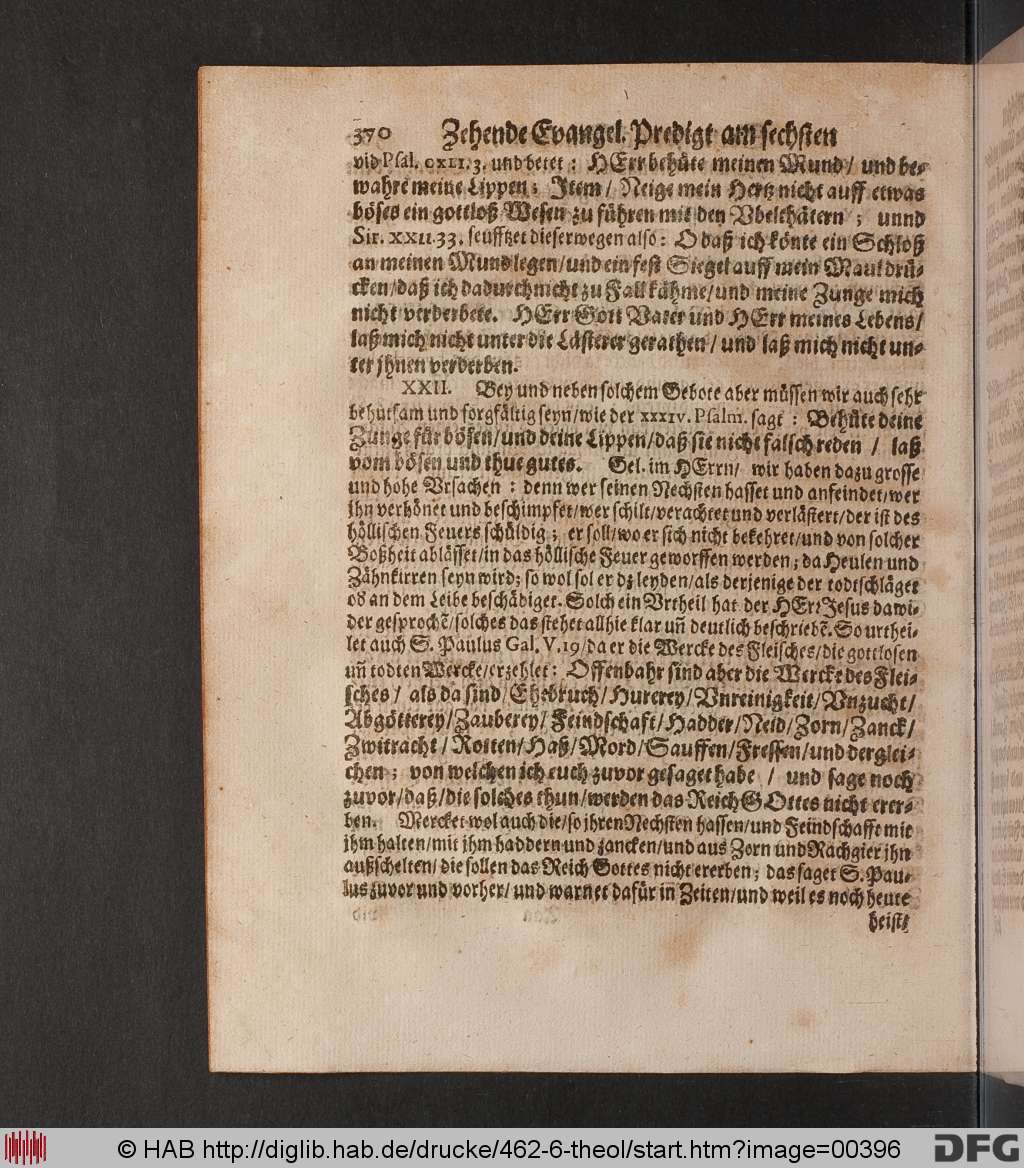 370 Zehende Evangel. Predigt am sechsten
vid Psal. CXLI. 3. und betet : HErr behüte meinen Mund / und be-
wahre meine Lippen ; Item / Neige mein Hertz nicht auff etwas
böses ein gottloß Wesen zu führen mit den Vbelthätern ; unnd
Sir. XXII. 33. seufftzet dieserwegen also : O daß ich könte ein Schloß
an meinen Mund legen / und ein fest Siegel auff mein Maul drü-
cken / daß ich dadurch nicht zu Fall kähme / und meine Zunge mich
nicht verderbete. HErr Gott Vater und HErr meines Lebens /
laß mich nicht unter die Lästerer gerathen / und laß mich nicht un-
ter jhnen verderben.
XXII. Bey und neben solchem Gebote aber müssen wir auch sehr
behutsam und sorgfältig seyn / wie der XXXIV. Psalm. sagt : Behüte deine
Zunge für bösen / und deine Lippen / daß sie nicht falsch reden / laß
vom bösen und thue gutes. Gel. im HErrn / wir haben dazu grosse
und hohe Vrsachen : denn wer seinen Nechsten hasset und anfeindet / wer
jhn verhönet und beschimpfet / wer schilt / verachtet und verlästert / der ist des
höllischen Feuers schüldig ; er soll / wo er sich nicht bekehret / und von solcher
Boßheit ablässet / in das höllische Feuer geworffen werden ; da Heulen und
Zähnkirren seyn wird ; so wol sol er dz leyden / als derjenige der todtschläget
od an dem Leibe beschädiget. Solch ein Vrtheil hat der HErr Jesus dawi-
der gesprochẽ / solches das stehet allhie klar uñ deutlich beschriebẽ. So urthei-
let auch S. Paulus Gal. V. 19 / da er die Wercke des Fleisches / die gottlosen
uñ todten Wercke / erzehlet : Offenbahr sind aber die Wercke des Flei-
sches / als da sind / Ehebruch / Hurerey / Vnreinigkeit / Vnzucht /
Abgötterey / Zauberey / Feindschaft / Hadder / Neid / Zorn / Zanck /
Zwitracht / Rotten / Haß / Mord / Sauffen / Fressen / und derglei-
chen ; von welchen ich euch zuvor gesaget habe / und sage noch
zuvor / daß / die solches thun / werden das Reich GOttes nicht erer-
ben. Mercket wol auch die / so jhren Nechsten hassen / und Feindschafft mit
jhm halten / mit jhm haddern und zancken / und aus Zorn und Rachgier jhn
außschelten / die sollen das Reich Gottes nicht ererben ; das saget S. Pau-
lus zuvor und vorher / und warnet dafür in Zeiten / und weil es noch heute
heist /
© HAB http://diglib.hab.de/drucke/462-6-theol/start.htm?image=00396
DFG